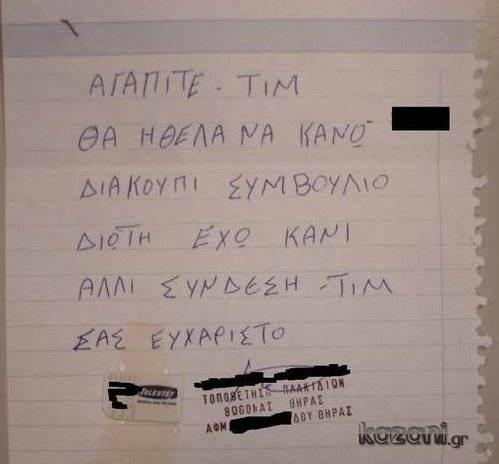 ΑΓΑΠΙΤΕ - ΤΙΜ
ΘΑ ΗΘΕΛΑ ΝΑ ΚΑΝΩ
ΔΙΑΚΟΥΠΙ ΣΥΜΒΟΥΛΙΟ
ΔΙΩΤΗ ΕΧΩ ΚΑΝΙ
ΑΛΛΙ ΣΥΝΔΕΣΗ - ΤΙΜ
ΣΑΣ ΕΥΧΑΡΙΣΤΟ
ΤΟΠΟΘΕΤΗΣΗ ΠΛΑΚΙΔΙΩΝ
ΒΟΘΩΝΑΣ ΘΗΡΑΣ
ΑΦΜ ΔΟΥ ΘΗΡΑΣ
kazani.gr